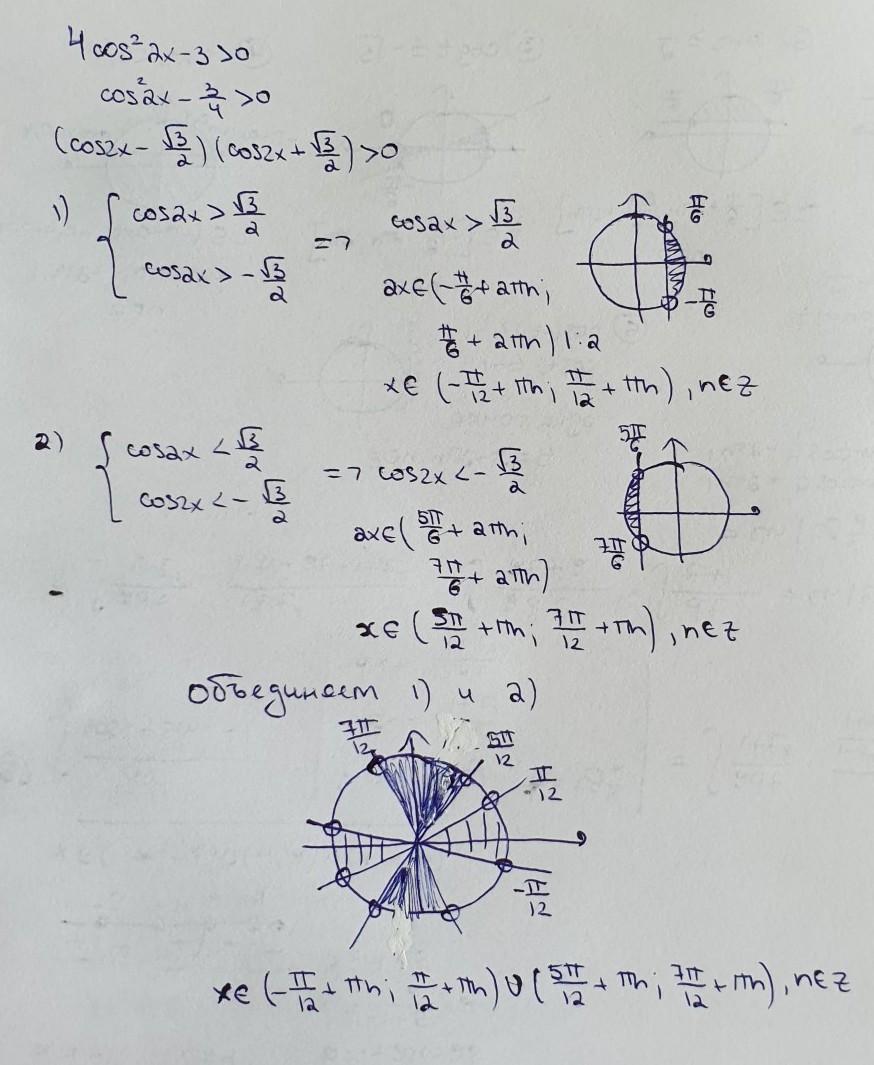 4cos²2x-3>0
cos²2x - 3/4 >0
(cos2x - √3/2)(cos2x + √3/2)>0
1) { cos2x > √3/2
cos2x > -√3/2
=> cos2x > √3/2
2x∈(-π/6 + 2πn;
π/6 + 2πn) |:2
x∈ (-π/12 + πn; π/12 + πn), n∈Z
π/6
-π/6
2) { cos2x < √3/2
cos2x < - √3/2
=> cos2x < - √3/2
2x∈(5π/6 + 2πn;
7π/6 + 2πn)
x∈ (5π/12 + πn; 7π/12 + πn), n∈Z
5π/6
7π/6
Объединяем 1) и 2)
7π/12
5π/12
π/12
-π/12
x∈ (-π/12 + πn; π/12 + πn) ∪ (5π/12 + πn; 7π/12 + πn), n∈Z